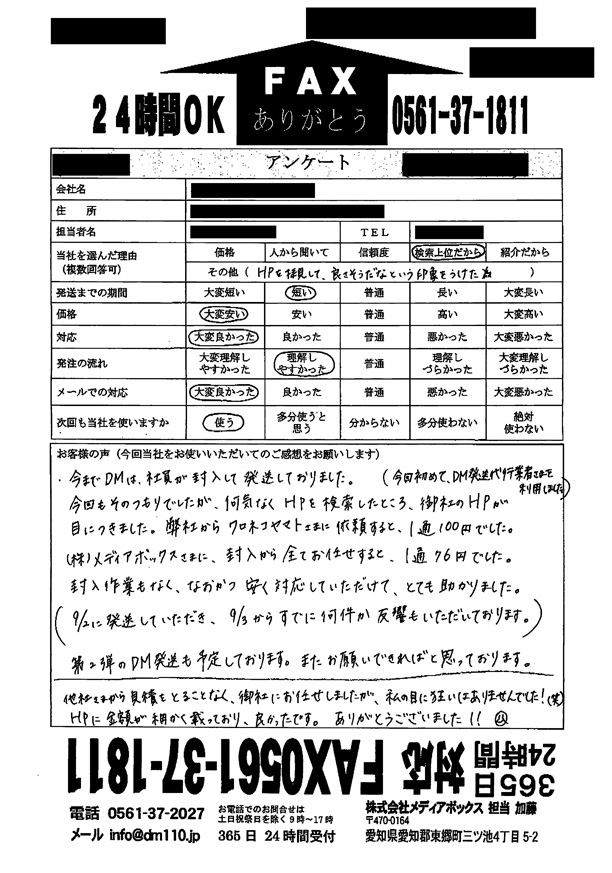 FAX
ありがとう
24時間OK
0561-37-1811
アンケート
会社名
住 所
担当者名 TEL
当社を選んだ理由(複数回答可) 価格 人から聞いて 信頼度 検索上位だから 紹介だから
その他( HPを拝見して、良さそうだなという印象をうけた為 )
発送までの期間 大変短い 短い 普通 長い 大変長い
価格 大変安い 安い 普通 高い 大変高い
対応 大変良かった 良かった 普通 悪かった 大変悪かった
発注の流れ 大変理解しやすかった 理解しやすかった 普通 理解しづらかった 大変理解しづらかった
メールでの対応 大変良かった 良かった 普通 悪かった 大変悪かった
次回も当社を使いますか 使う 多分使うと思う 分からない 多分使わない 絶対使わない
お客様の声(今回当社をお使いいただいてのご感想をお願いします)
・今までDMは、社員が封入して発送しておりました。(今回初めて、DM発送代行業者さまを利用しました)
今回もそのつもりでしたが、何気なくHPを検索したところ、御社のHPが
目につきました。弊社からクロネコヤマトさまに依頼すると、1通100円でした。
(株)メディアボックスさまに、封入から全てお任せすると、1通76円でした。
封入作業もなく、なおかつ安く対応していただけて、とても助かりました。
(9/2に発送していただき、9/3からすでに何件か反響もいただいております。)
第2弾のDM発送も予定しております。またお願いできればと思っております。
他社さまから見積をとることなく、御社にお任せしましたが、私の目に狂いはありませんでした!(笑)
HPに金額が細かく載っており、良かったです。ありがとうございました!!
365日24時間対応 FAX0561-37-1811
電話 0561-37-2027 お電話でのお問合せは土日祝祭日を除く9時~17時 株式会社メディアボックス 担当 加藤
〒470-0164
メール info@dm110.jp 365日24時間受付 愛知県愛知郡東郷町三ツ池4丁目5-2